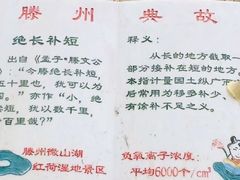 滕州
绝长补短
出自《孟子·滕文公
》:“今滕绝长补短,
五十里也,犹可以为
国。”亦作“小,绝
短,犹以数千里
百里哉?”
滕州微山湖
红荷湿地景区
典故
释义:
从长的地方截取一
部分接补在短的地方,
本指计量国土纵广
后常用为移多补少,
有余补不足之义。
负氧离子浓度:
平均6000个/cm³